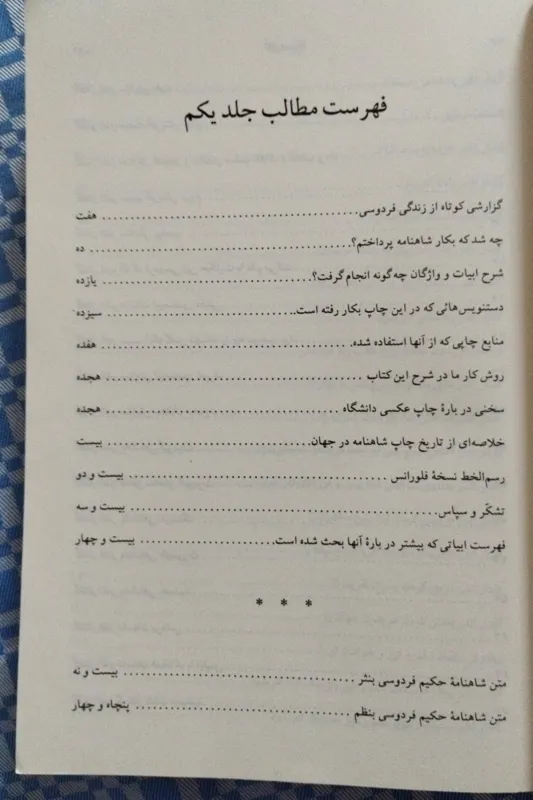 فهرست مطالب جلد یکم
گزارشی کوتاه از زندگی فردوسی .......... هفت
چه شد که بکار شاهنامه پرداختم؟ .......... ده
شرح ابیات و واژگان چه‌گونه انجام گرفت؟ .......... یازده
دستنویس‌هائی که در این چاپ بکار رفته است .......... سیزده
منابع چاپی که از آنها استفاده شده. .......... هفده
روش کار ما در شرح این کتاب .......... هجده
سخنی در بارهٔ چاپ عکسی دانشگاه .......... هجده
خلاصه‌ای از تاریخ چاپ شاهنامه در جهان .......... بیست
رسم‌الخط نسخهٔ فلورانس .......... بیست و دو
تشکّر و سپاس .......... بیست و سه
فهرست ابیاتی که بیشتر در بارهٔ آنها بحث شده است .......... بیست و چهار
* * *
متن شاهنامهٔ حکیم فردوسی بنثر .......... بیست و نه
متن شاهنامهٔ حکیم فردوسی بنظم .......... پنجاه و چهار